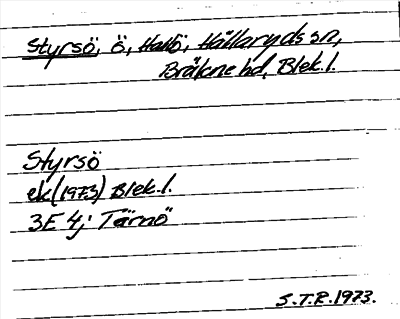 Styrsö, ö, Hallö, Hällaryds sn,
Bräkne hd, Blek.l.
Styrsö
ek (1973) Blek.l.
3E 4j Tärnö
S.T.R. 1973.